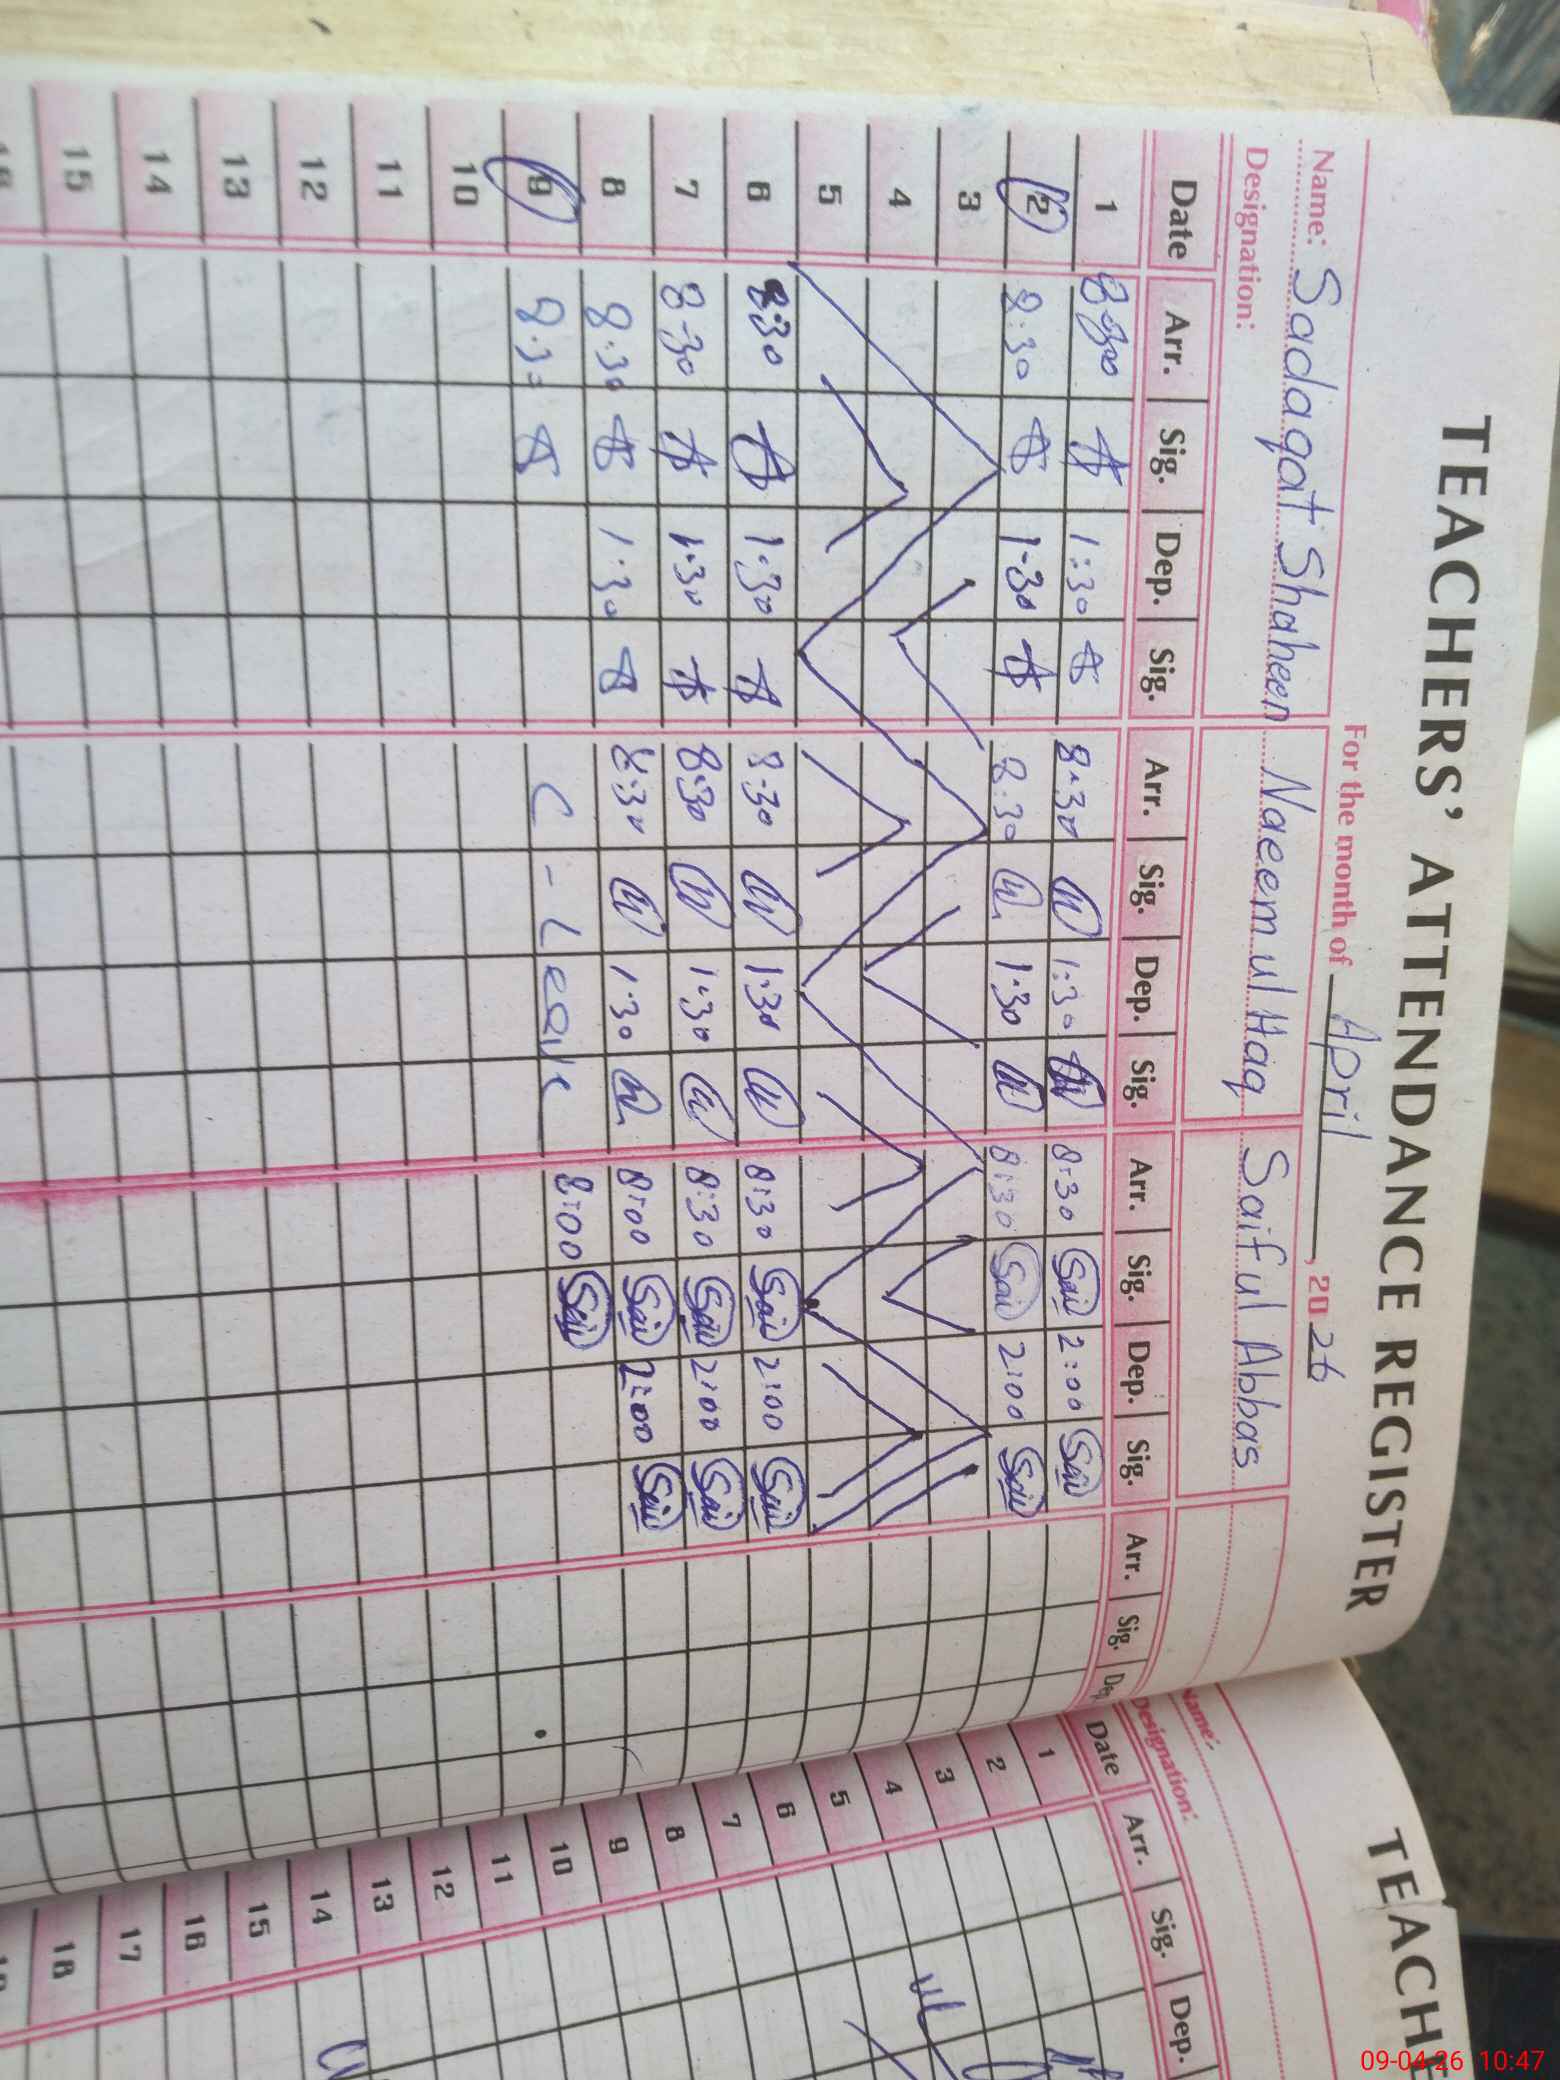 TEACHERS' ATTENDANCE REGISTER
For the month of April, 2026
Name: Sadaqat Shaheen Naeem ul Haq Saif ul Abbas
Designation:
Date Arr. Sig. Dep. Sig. Arr. Sig. Dep. Sig. Arr. Sig. Dep. Sig. Arr. Sig. Dep.
1 8:30 1:30 8:30 1:30 8:30 Sai 2:00 Sai
2 8:30 1:30 8:30 1:30 8:30 Sai 2:00 Sai
3
4
5
6 8:30 1:30 8:30 1:30 8:30 Sai 2:00 Sai
7 8:30 1:30 8:30 1:30 8:30 Sai 2:00 Sai
8 8:30 1:30 8:30 1:30 8:00 Sai 2:00 Sai
9 8:30 C-Leave 8:00 Sai
10
11
12
13
14
15
16
TEACHE
Name:
Designation:
Date Arr. Sig. Dep.
1
2
3
4
5
6
7
8
9
10
11
12
13
14
15
16
17
18
09-04-26 10:47